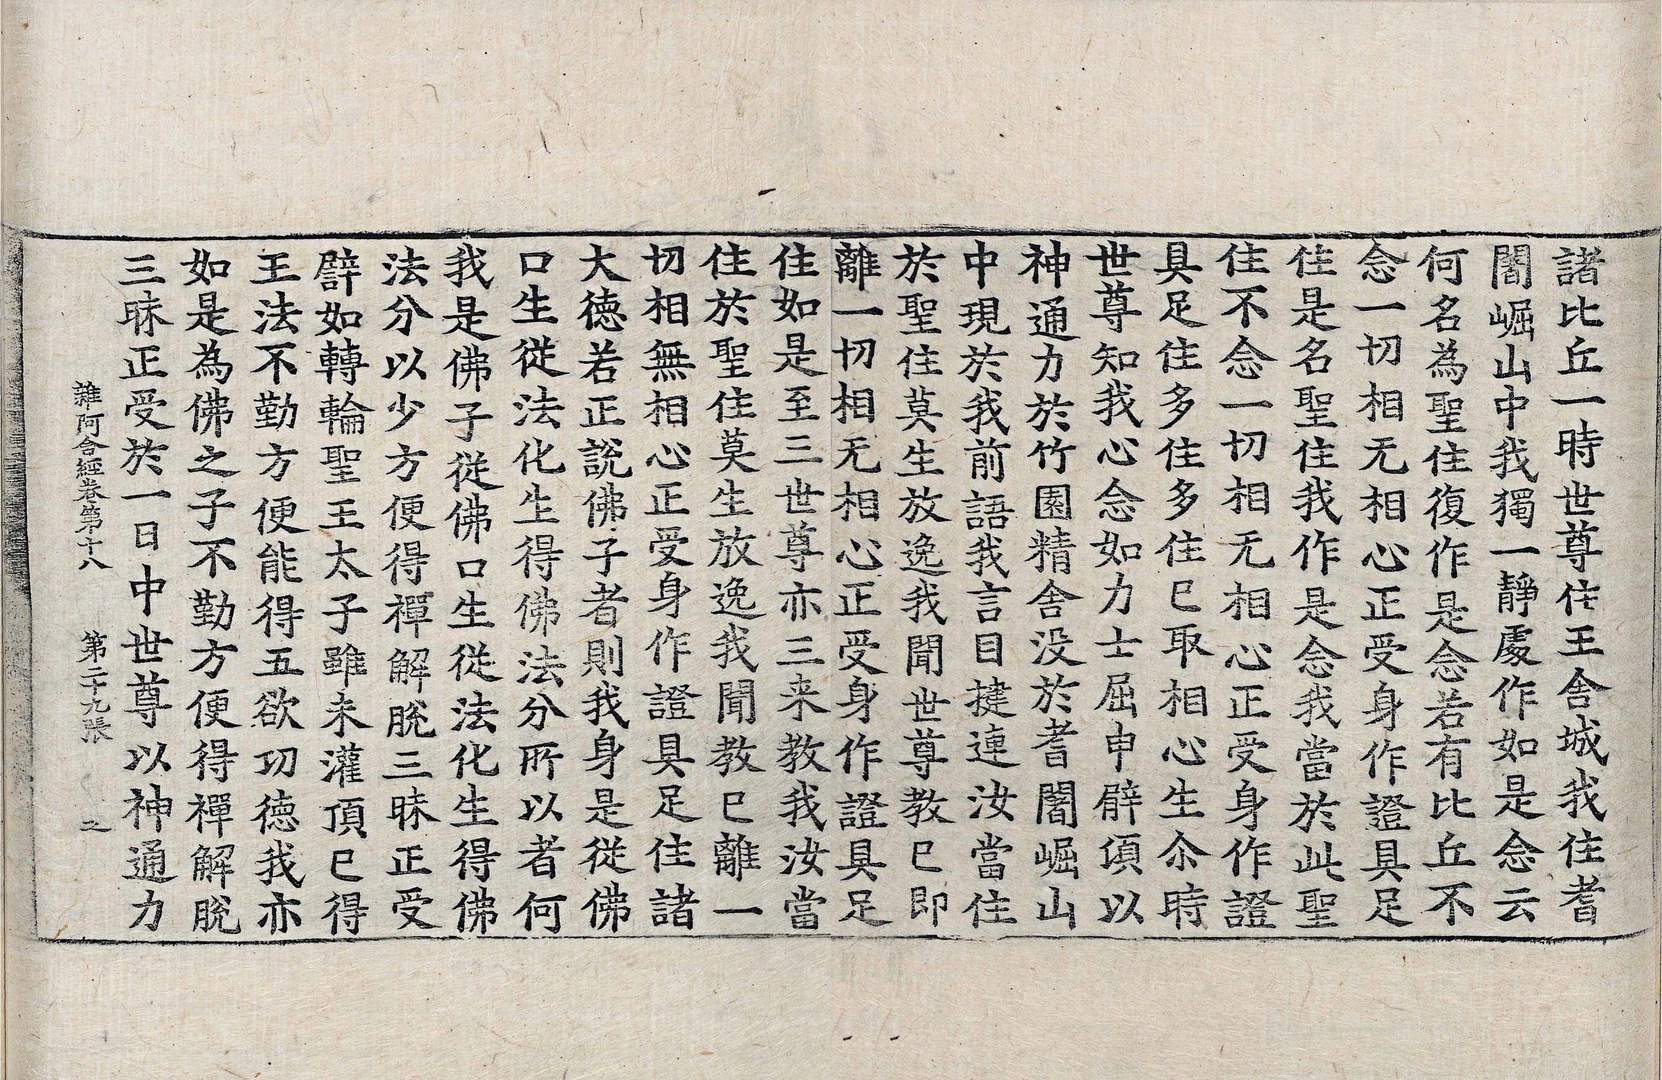 諸比丘一時世尊住王舍城我住耆
闍崛山中我獨一靜處作如是念云
何名為聖住復作是念若有比丘不
念一切相无相心正受身作證具足
住是名聖住我作是念我當於此聖
住不念一切相无相心正受身作證
具足住多住多住已取相心生尒時
世尊知我心念如力士屈申臂頃以
神通力於竹園精舍没於耆闍崛山
中現於我前語我言目揵連汝當住
於聖住莫生放逸我聞世尊教已即
離一切相无相心正受身作證具足
住如是至三世尊亦三来教我汝當
住於聖住莫生放逸我聞教已離一
切相無相心正受身作證具足住諸
大德若正說佛子者則我身是従佛
口生従法化生得佛法分所以者何
我是佛子従佛口生従法化生得佛
法分以少方便得禪解脫三昧正受
譬如轉輪聖王太子雖未灌頂已得
王法不勤方便能得五欲功德我亦
如是為佛之子不勤方便得禪解脫
三昧正受於一日中世尊以神通力
雜阿含經卷第十八 第二十九張 之